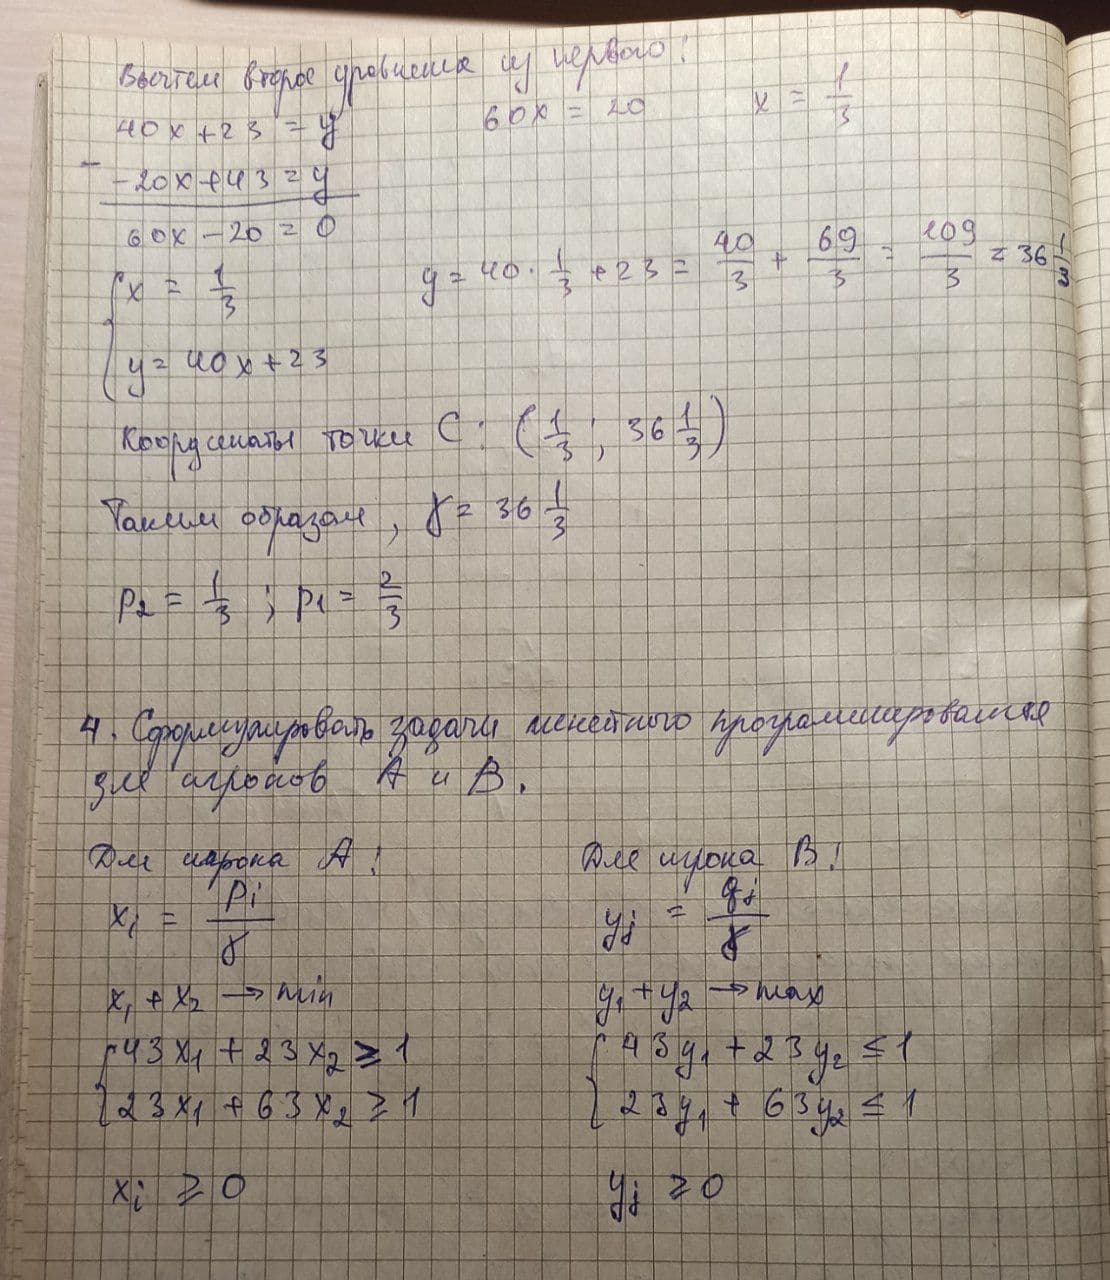 Вычтем второе уравнение из первого:
40x + 23 = y
60x = 20
x = 1/3
− -20x + 43 = y
60x - 20 = 0
{ x = 1/3
y = 40 · 1/3 + 23 = 40/3 + 69/3 = 109/3 = 36 1/3
y = 40x + 23
Координаты точки C: (1/3; 36 1/3)
Таким образом, γ = 36 1/3
p₂ = 1/3 ; p₁ = 2/3
4. Сформулировать задачи линейного программирования
для игроков A и B.
Для игрока A:
xᵢ = pᵢ/γ
x₁ + x₂ → min
{ 43x₁ + 23x₂ ≥ 1
23x₁ + 63x₂ ≥ 1
xᵢ ≥ 0
Для игрока B:
yⱼ = qⱼ/γ
y₁ + y₂ → max
{ 43y₁ + 23y₂ ≤ 1
23y₁ + 63y₂ ≤ 1
yⱼ ≥ 0